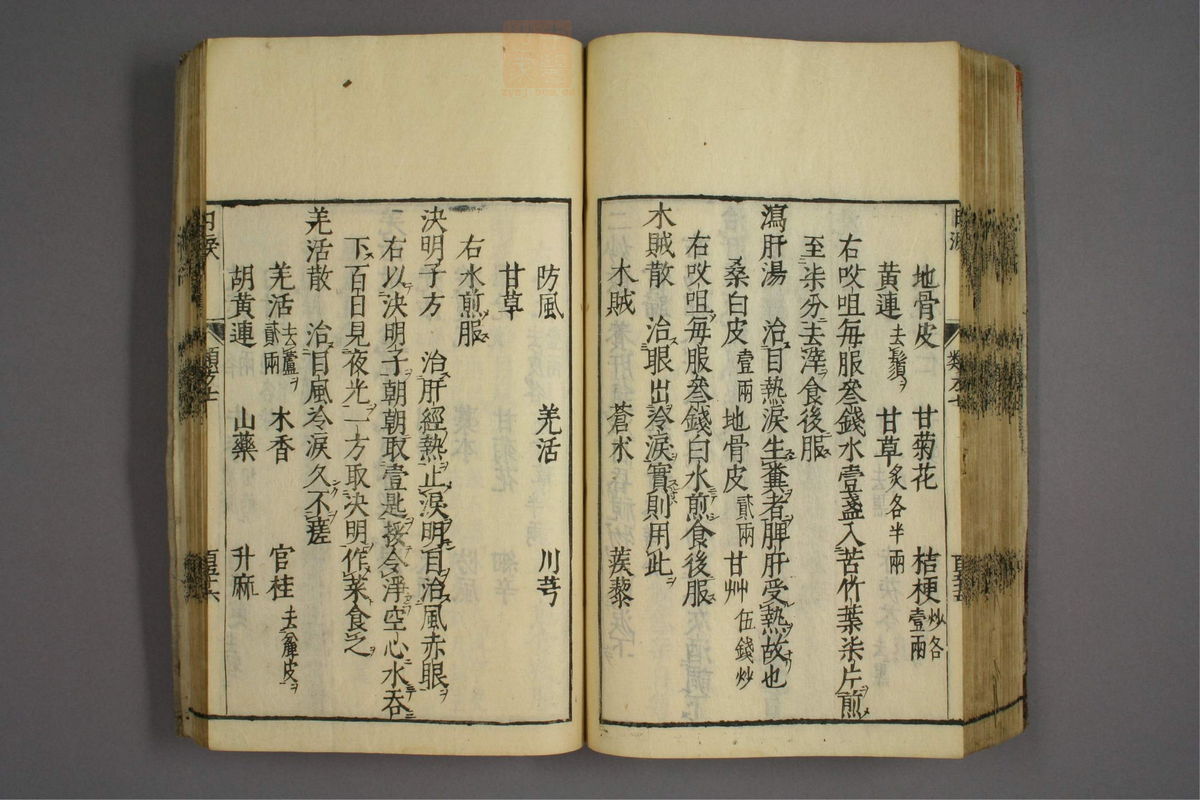 地骨皮 甘菊花 桔梗炒各壹兩
黄連去鬚ヲ 甘草炙各半兩
右㕮咀毎服叄錢水壹盞入苦竹葉柒片煎
至柒分去滓食後服
瀉肝湯 治目熱淚生糞者脾肝受熱故也
桑白皮壹兩 地骨皮貳兩 甘艸伍錢炒
右㕮咀毎服叄錢白水煎食後服
木賊散 治眼出冷淚實則用此
木賊 蒼朮 蒺藜
防風 羌活 川芎
甘草
右水煎服
決明子方 治肝經熱止淚明目治風赤眼
右以決明子朝朝取壹匙挼令淨空心水吞
下百日見夜光一方取決明作菜食之
羌活散 治目風冷淚久不瘥
羌活去蘆ヲ貳兩 木香 官桂去麄皮ヲ
胡黄連 山藥 升麻